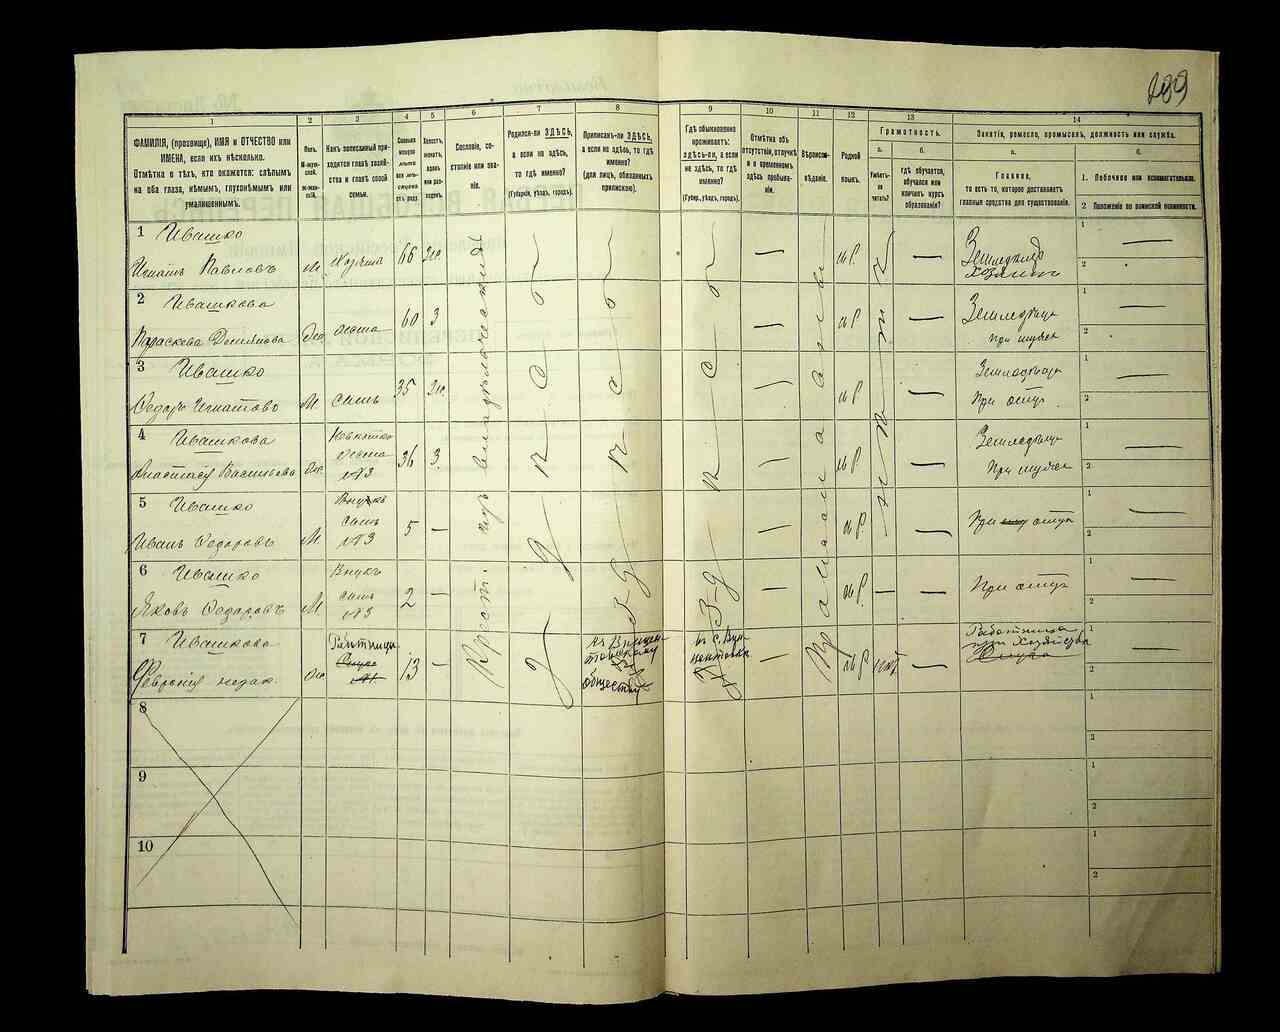 199
1 2 3 4 5 6 7 8 9 10 11 12 13 14
ФАМИЛІЯ, (прозвище), ИМЯ и ОТЧЕСТВО или
ИМЕНА, если ихъ нѣсколько.
Отмѣтка о тѣхъ, кто окажется: слѣпымъ
на оба глаза, нѣмымъ, глухонѣмымъ или
умалишеннымъ.
Полъ.
М-муж-
ской.
Ж-жен-
скій.
Какъ записанный при-
ходится главѣ хозяй-
ства и главѣ своей
семьи.
Сколько
минуло
лѣтъ
или мѣ-
сяцевъ
отъ роду.
Холостъ,
женатъ,
вдовъ
или раз-
веденъ.
Сословіе, со-
стояніе или зва-
ніе.
Родился-ли ЗДѢСЬ,
а если не здѣсь,
то гдѣ именно?
(Губернія, уѣздъ, городъ).
Приписанъ-ли ЗДѢСЬ,
а если не здѣсь, то гдѣ
именно?
(для лицъ, обязанныхъ
припискою).
Гдѣ обыкновенно
проживаетъ:
здѣсь-ли, а если
не здѣсь, то гдѣ
именно?
(Губер., уѣздъ, городъ).
Отмѣтка объ
отсутствіи, отлучкѣ
и о временномъ
здѣсь пребыва-
ніи.
Вѣроиспо-
вѣданіе.
Родной
языкъ.
Грамотность.
а.
Умѣетъ-
ли
читать?
б.
гдѣ обучается,
обучался или
кончилъ курсъ
образованія?
Занятіе, ремесло, промыселъ, должность или служба.
а.
Главное,
то есть то, которое доставляетъ
главныя средства для существованія.
б.
1. Побочное или вспомогательное.
2 Положеніе по воинской повинности.
1 Ивашко
Игнатъ Павловъ м. Хозяинъ 66 Же. — м Р. — Земледѣлецъ
хозяинъ
2 Ивашкова
Параскева Демьянова же жена 60 3 — м Р — Земледѣлецъ
при мужѣ
3 Ивашко
Федоръ Игнатовъ М. сынъ 35 Же. — м Р — Земледѣлецъ
При отцѣ
4 Ивашкова
Анастасія Васильева же Невѣстка
жена
№3 36 3. — м Р. — Земледѣлецъ
При мужѣ
5 Ивашко
Иванъ Федоровъ М. Внукъ
сынъ
№3 5 — — м Р. — При отцѣ
6 Ивашко
Яковъ Федоровъ М Внукъ
сынъ
№3 2 — — м Р. — — При отцѣ
7 Ивашкова
Февронія незак. же Работница 13 — — м Р нѣт — Работница
при Хозяйствѣ
обществу
въ с. Вик-
Крест. изъ владѣльческихъ
З-д
З-д
Православная
8
9
10